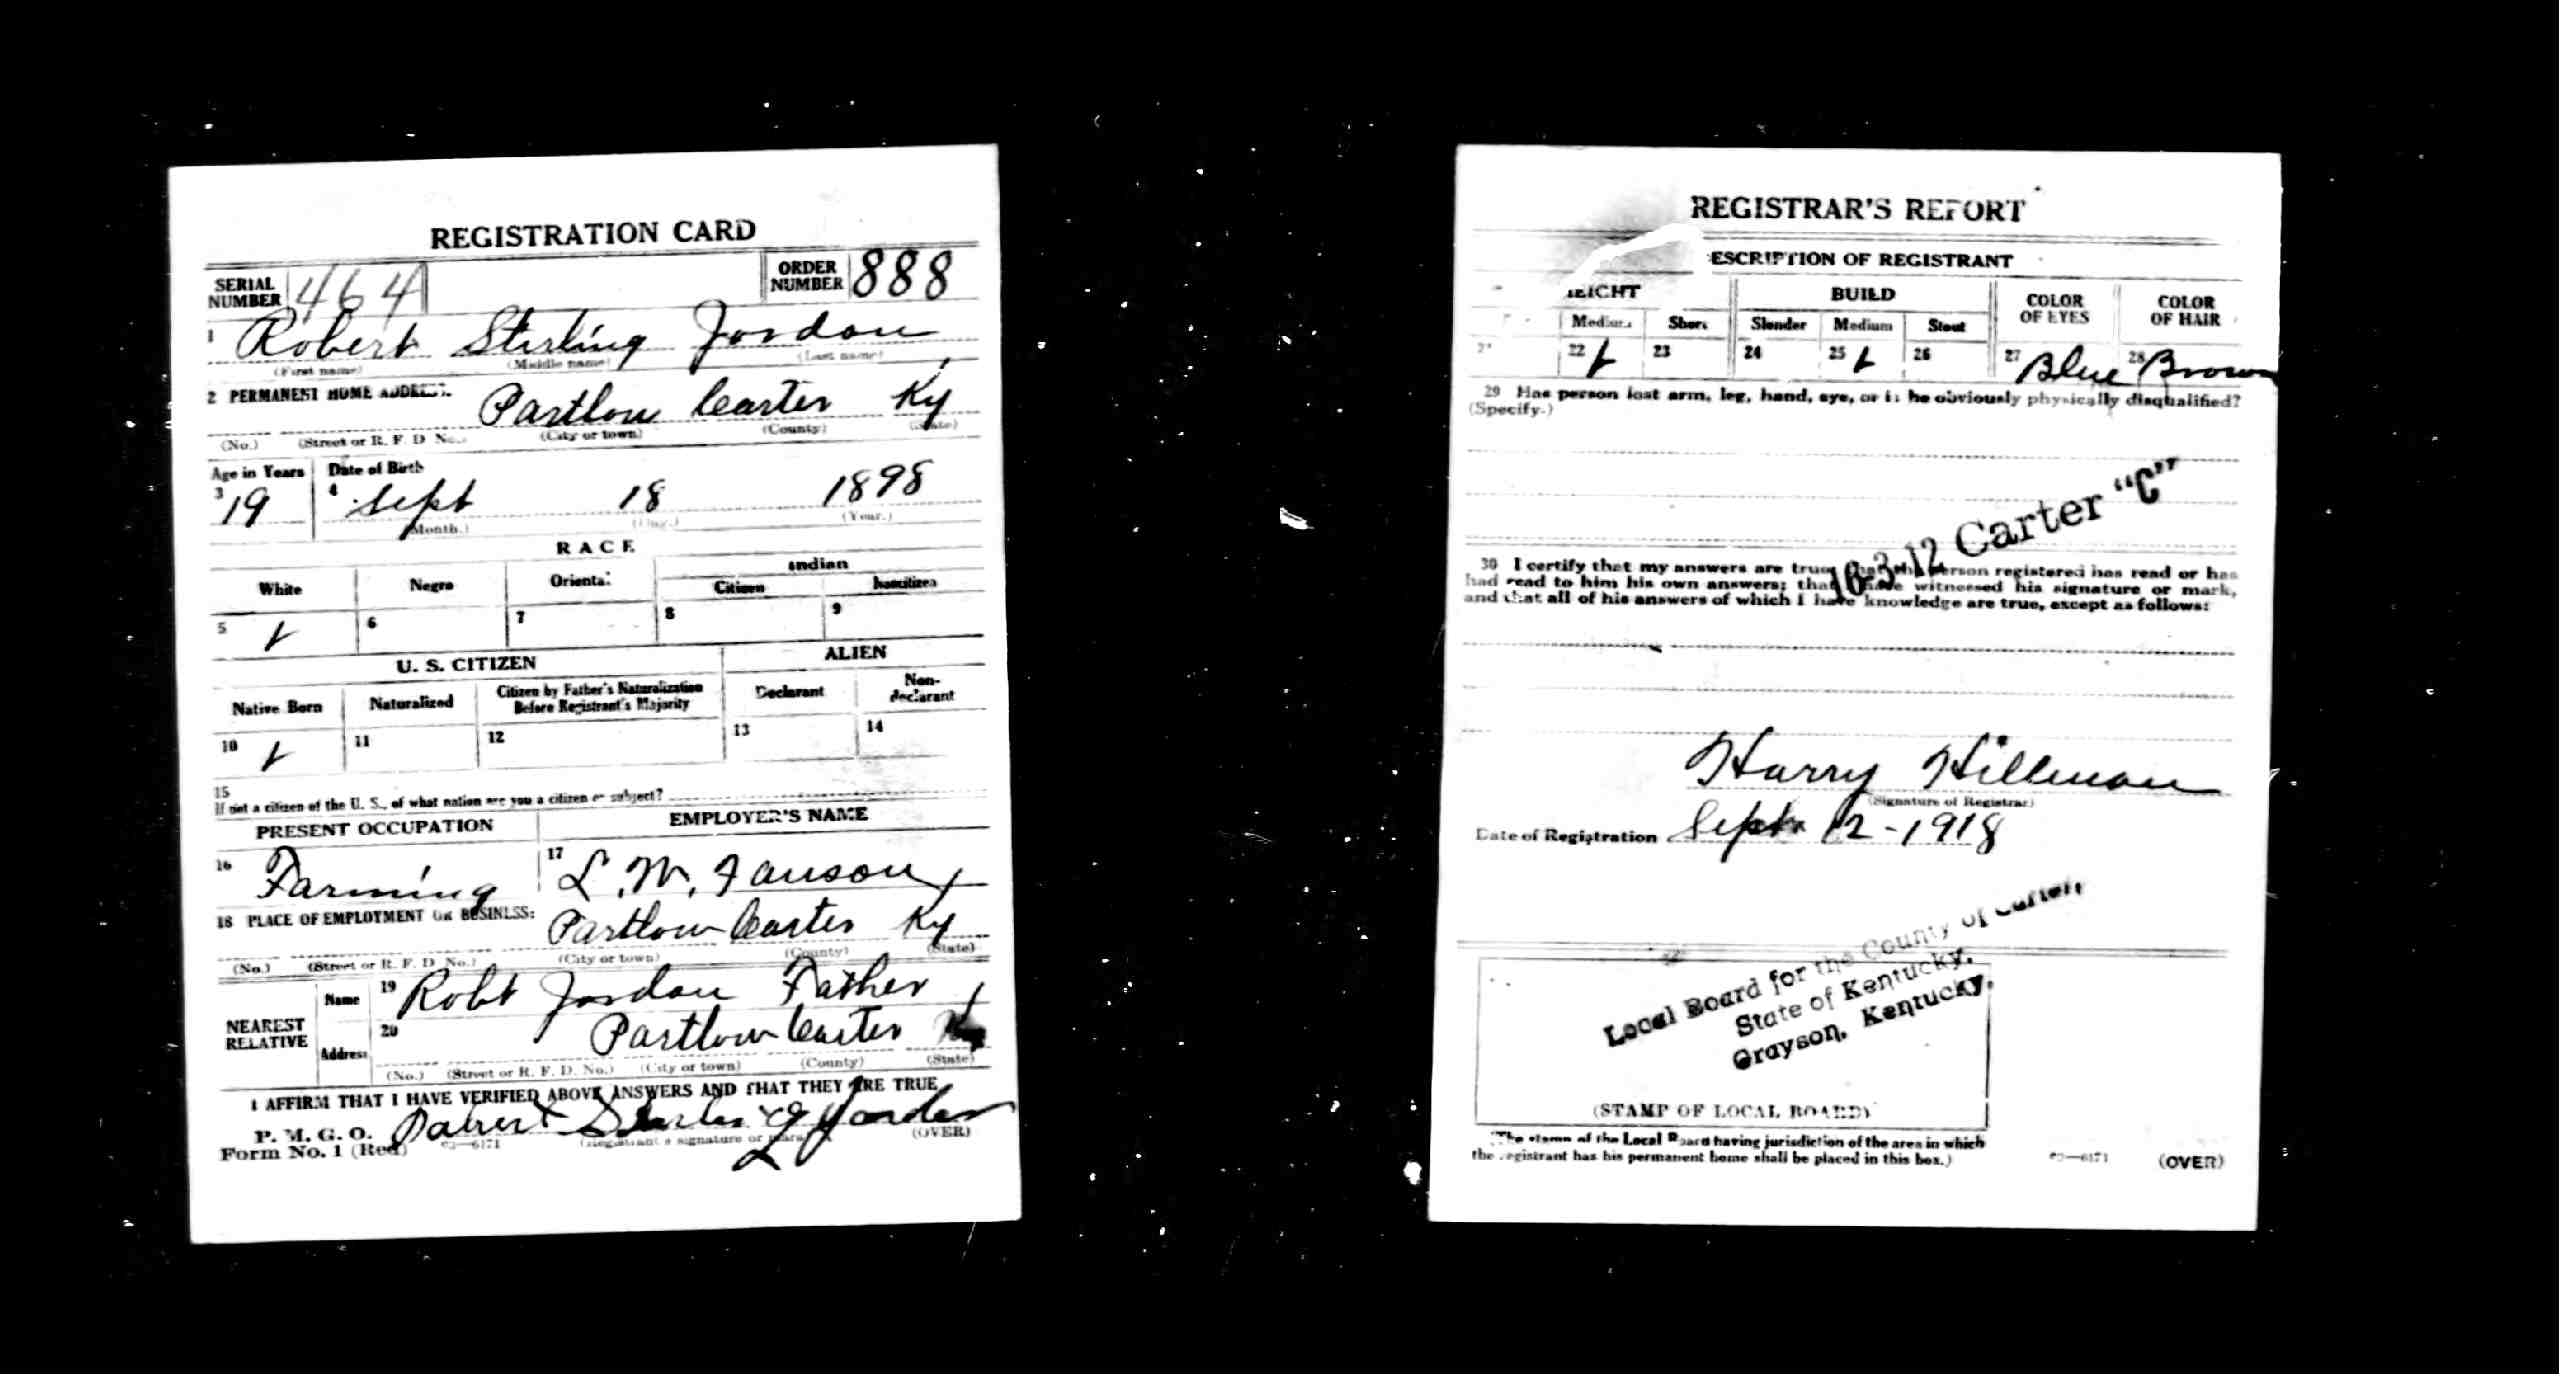 REGISTRATION CARD
SERIAL NUMBER 464 ORDER NUMBER 888
1 Robert Stirling Jordan
(First name) (Middle name) (Last name)
2 PERMANENT HOME ADDRESS: Partlow Carter Ky
(No.) (Street or R. F. D. No.) (City or town) (County) (State)
Age in Years Date of Birth
3 19 4 Sept 18 1898
(Month.) (Day.) (Year.)
RACE
White Negro Oriental Indian
Citizen Noncitizen
5 6 7 8 9
U. S. CITIZEN ALIEN
Native Born Naturalized Citizen by Father's Naturalization Before Registrant's Majority Declarant Non-declarant
10 11 12 13 14
15
If not a citizen of the U. S., of what nation are you a citizen or subject?
PRESENT OCCUPATION EMPLOYER'S NAME
16 Farming 17 L. M.
18 PLACE OF EMPLOYMENT OR BUSINESS: Partlow Carter Ky
(No.) (Street or R. F. D. No.) (City or town) (County) (State)
NEAREST RELATIVE Name 19 Robt Jordan Father
Address 20 Partlow Carter
(No.) (Street or R. F. D. No.) (City or town) (County) (State)
I AFFIRM THAT I HAVE VERIFIED ABOVE ANSWERS AND THAT THEY ARE TRUE
P. M. G. O. Jordan
Form No. 1 (Red) 03—6171 (Registrant's signature or mark) (OVER)
REGISTRAR'S REPORT
ESCRIPTION OF REGISTRANT
HEIGHT BUILD COLOR OF EYES COLOR OF HAIR
Medium Short Slender Medium Stout
21 22 23 24 25 26 27 Blue 28 Brown
29 Has person lost arm, leg, hand, eye, or is he obviously physically disqualified?
(Specify.)
16-3-12 Carter "C"
30 I certify that my answers are true; that the person registered has read or has
had read to him his own answers; that I have witnessed his signature or mark,
and that all of his answers of which I have knowledge are true, except as follows:
Harry Hillman
(Signature of Registrar)
Date of Registration Sept 12-1918
Local Board for the County of Carter,
State of Kentucky.
Grayson, Kentucky.
(STAMP OF LOCAL BOARD)
(The stamp of the Local Board having jurisdiction of the area in which
the registrant has his permanent home shall be placed in this box.)
03—6171 (OVER)